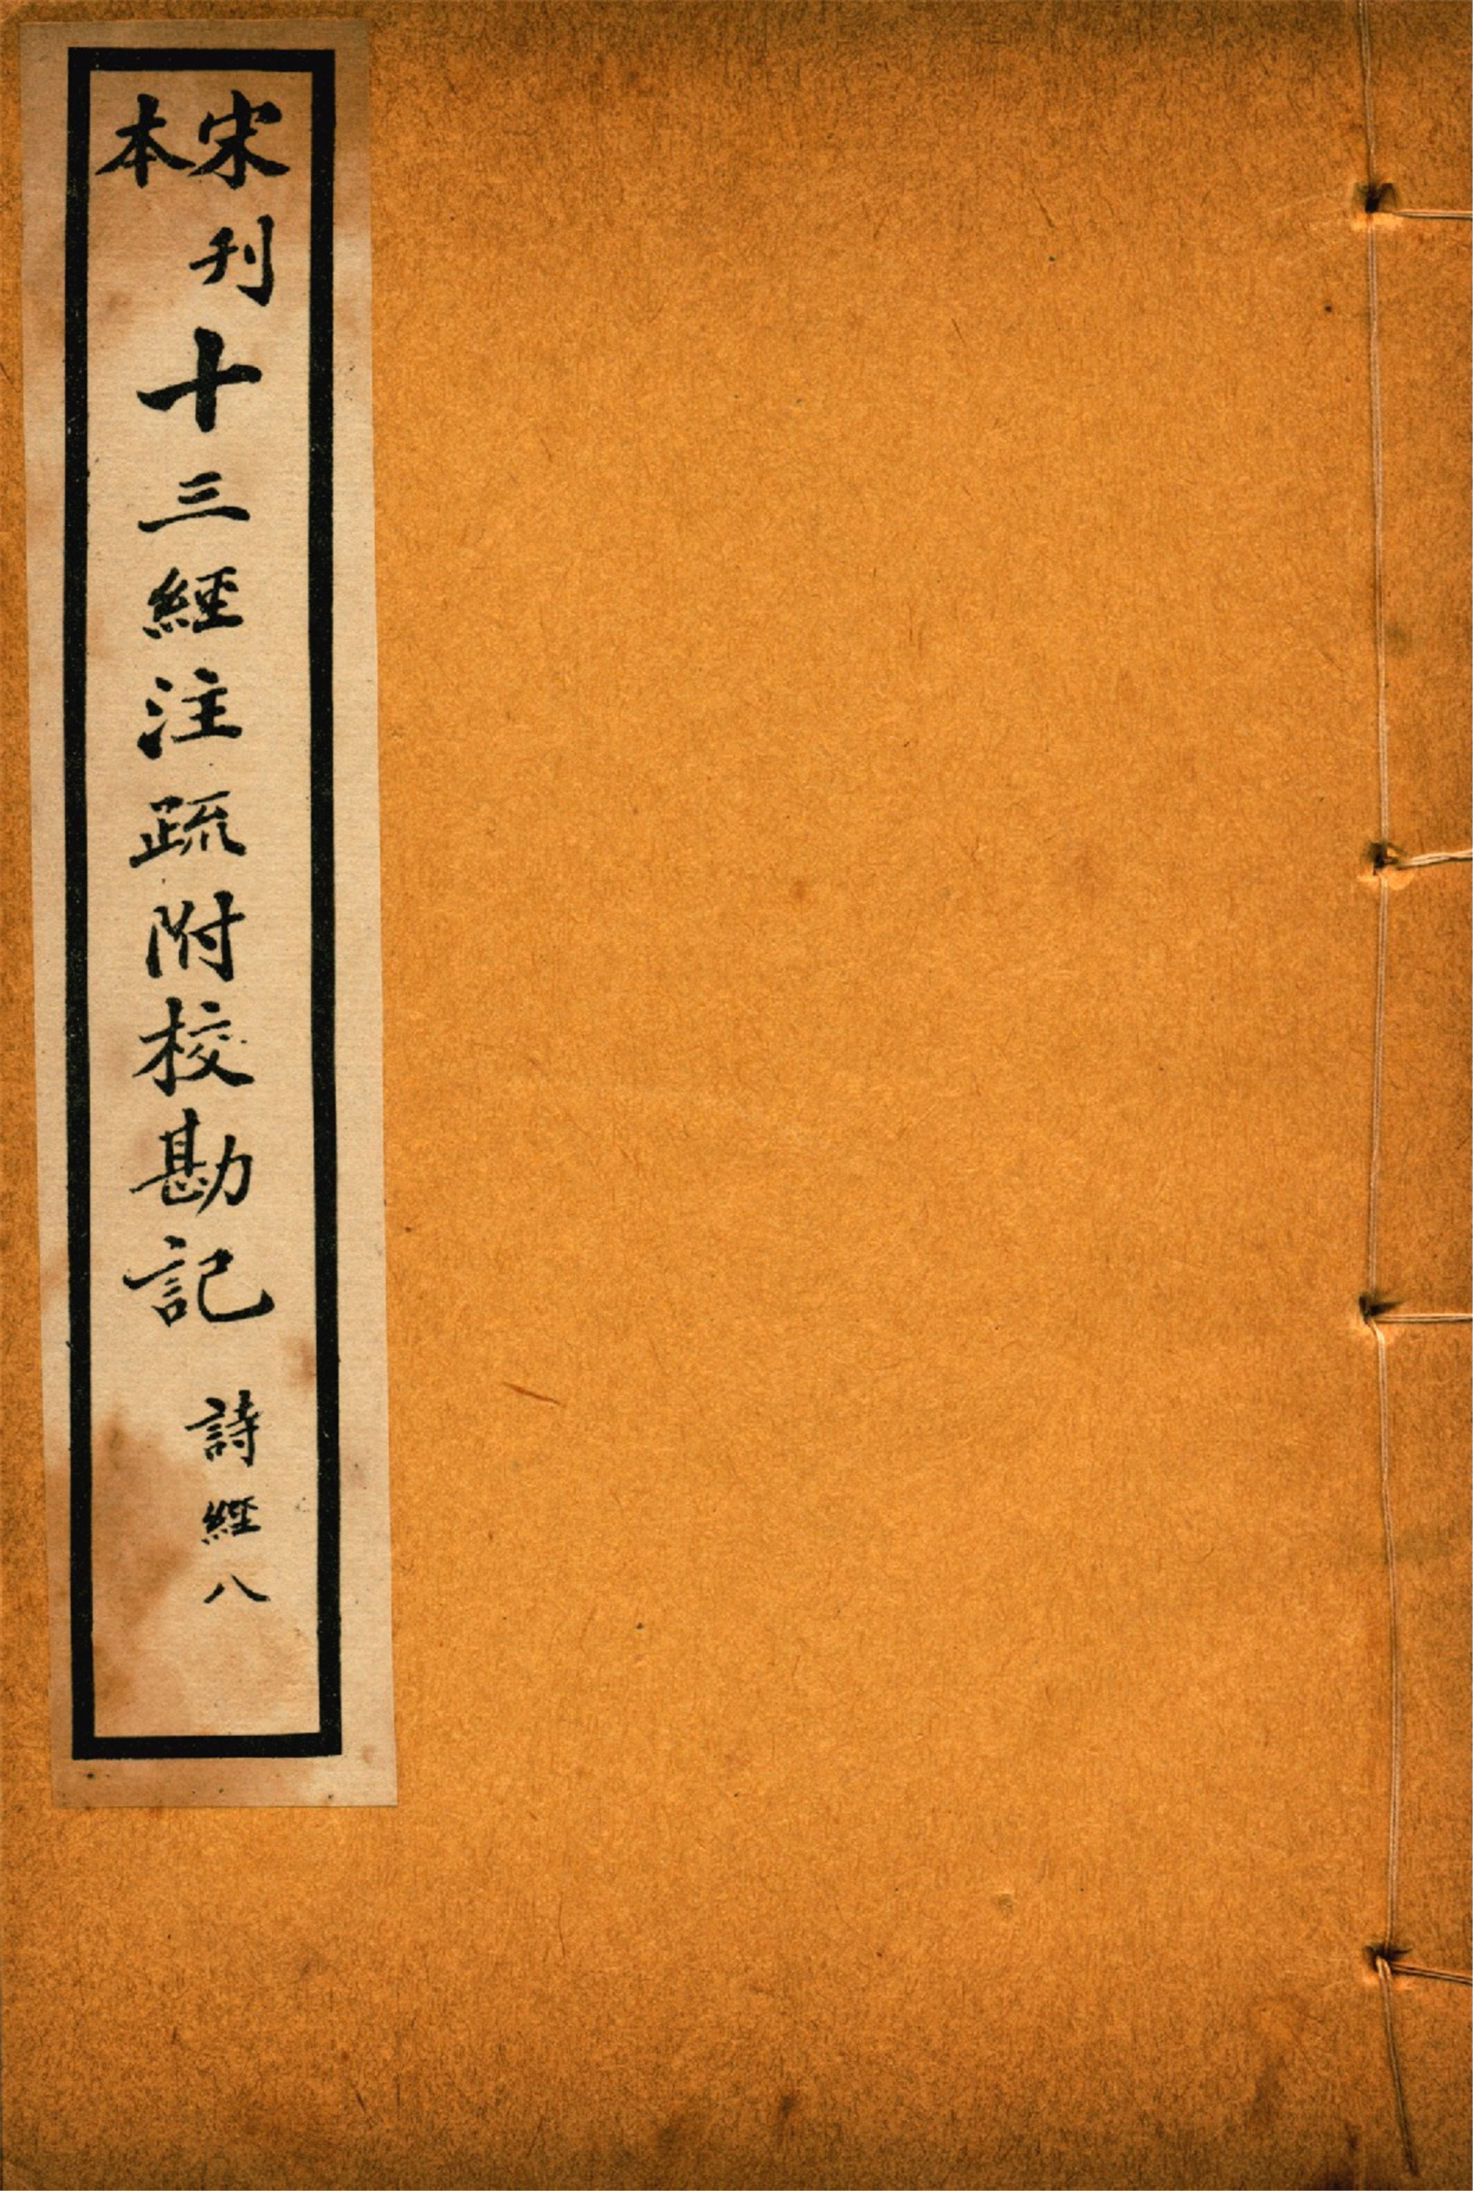 宋刊本
十三經注疏附校勘記
詩經八